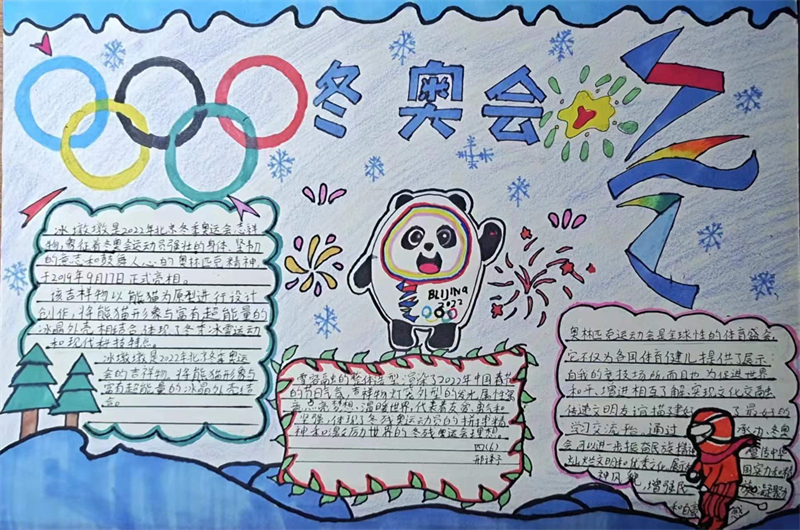 冬奥会
冰墩墩是2022年北京冬季奥运会吉祥
物,象征着冬奥会运动员强壮的身体、坚韧
的意志和鼓舞人心的奥林匹克精神
于2019年9月17日正式亮相。
该吉祥物以熊猫为原型进行设计
创作,将熊猫形象与富有超能量的
冰晶外壳相结合,体现了冬季冰雪运动
和现代科技特点。
冰墩墩是2022年北京冬季奥运
会的吉祥物,将熊猫形象与
富有超能量的冰晶外壳结
合。
BLIJING
2022
雪容融的整体造型,渲染了2022年中国春节
的节日气氛,吉祥物灯笼外型的发光属性寓
梦想,温暖世界,代表着友爱、勇气和
坚强,体现了冬残奥运动员的拼搏精
神和激励世界的冬残奥运会理想。
四(6)
奥林匹克运动会是全球性的体育盛会,
它不仅为各国体育健儿提供了展示
自我的竞技场所,而且也为促进世界
和平、增进相互了解、实现文化交融、
促进文明友谊搭建
了最好的
学习交流平台,通过
冬奥
会,可以进一步振奋民族精
宣传中华
灿烂文明和优秀文化,展示
国实力和精
神风貌,增强民
凝聚力
和自
感